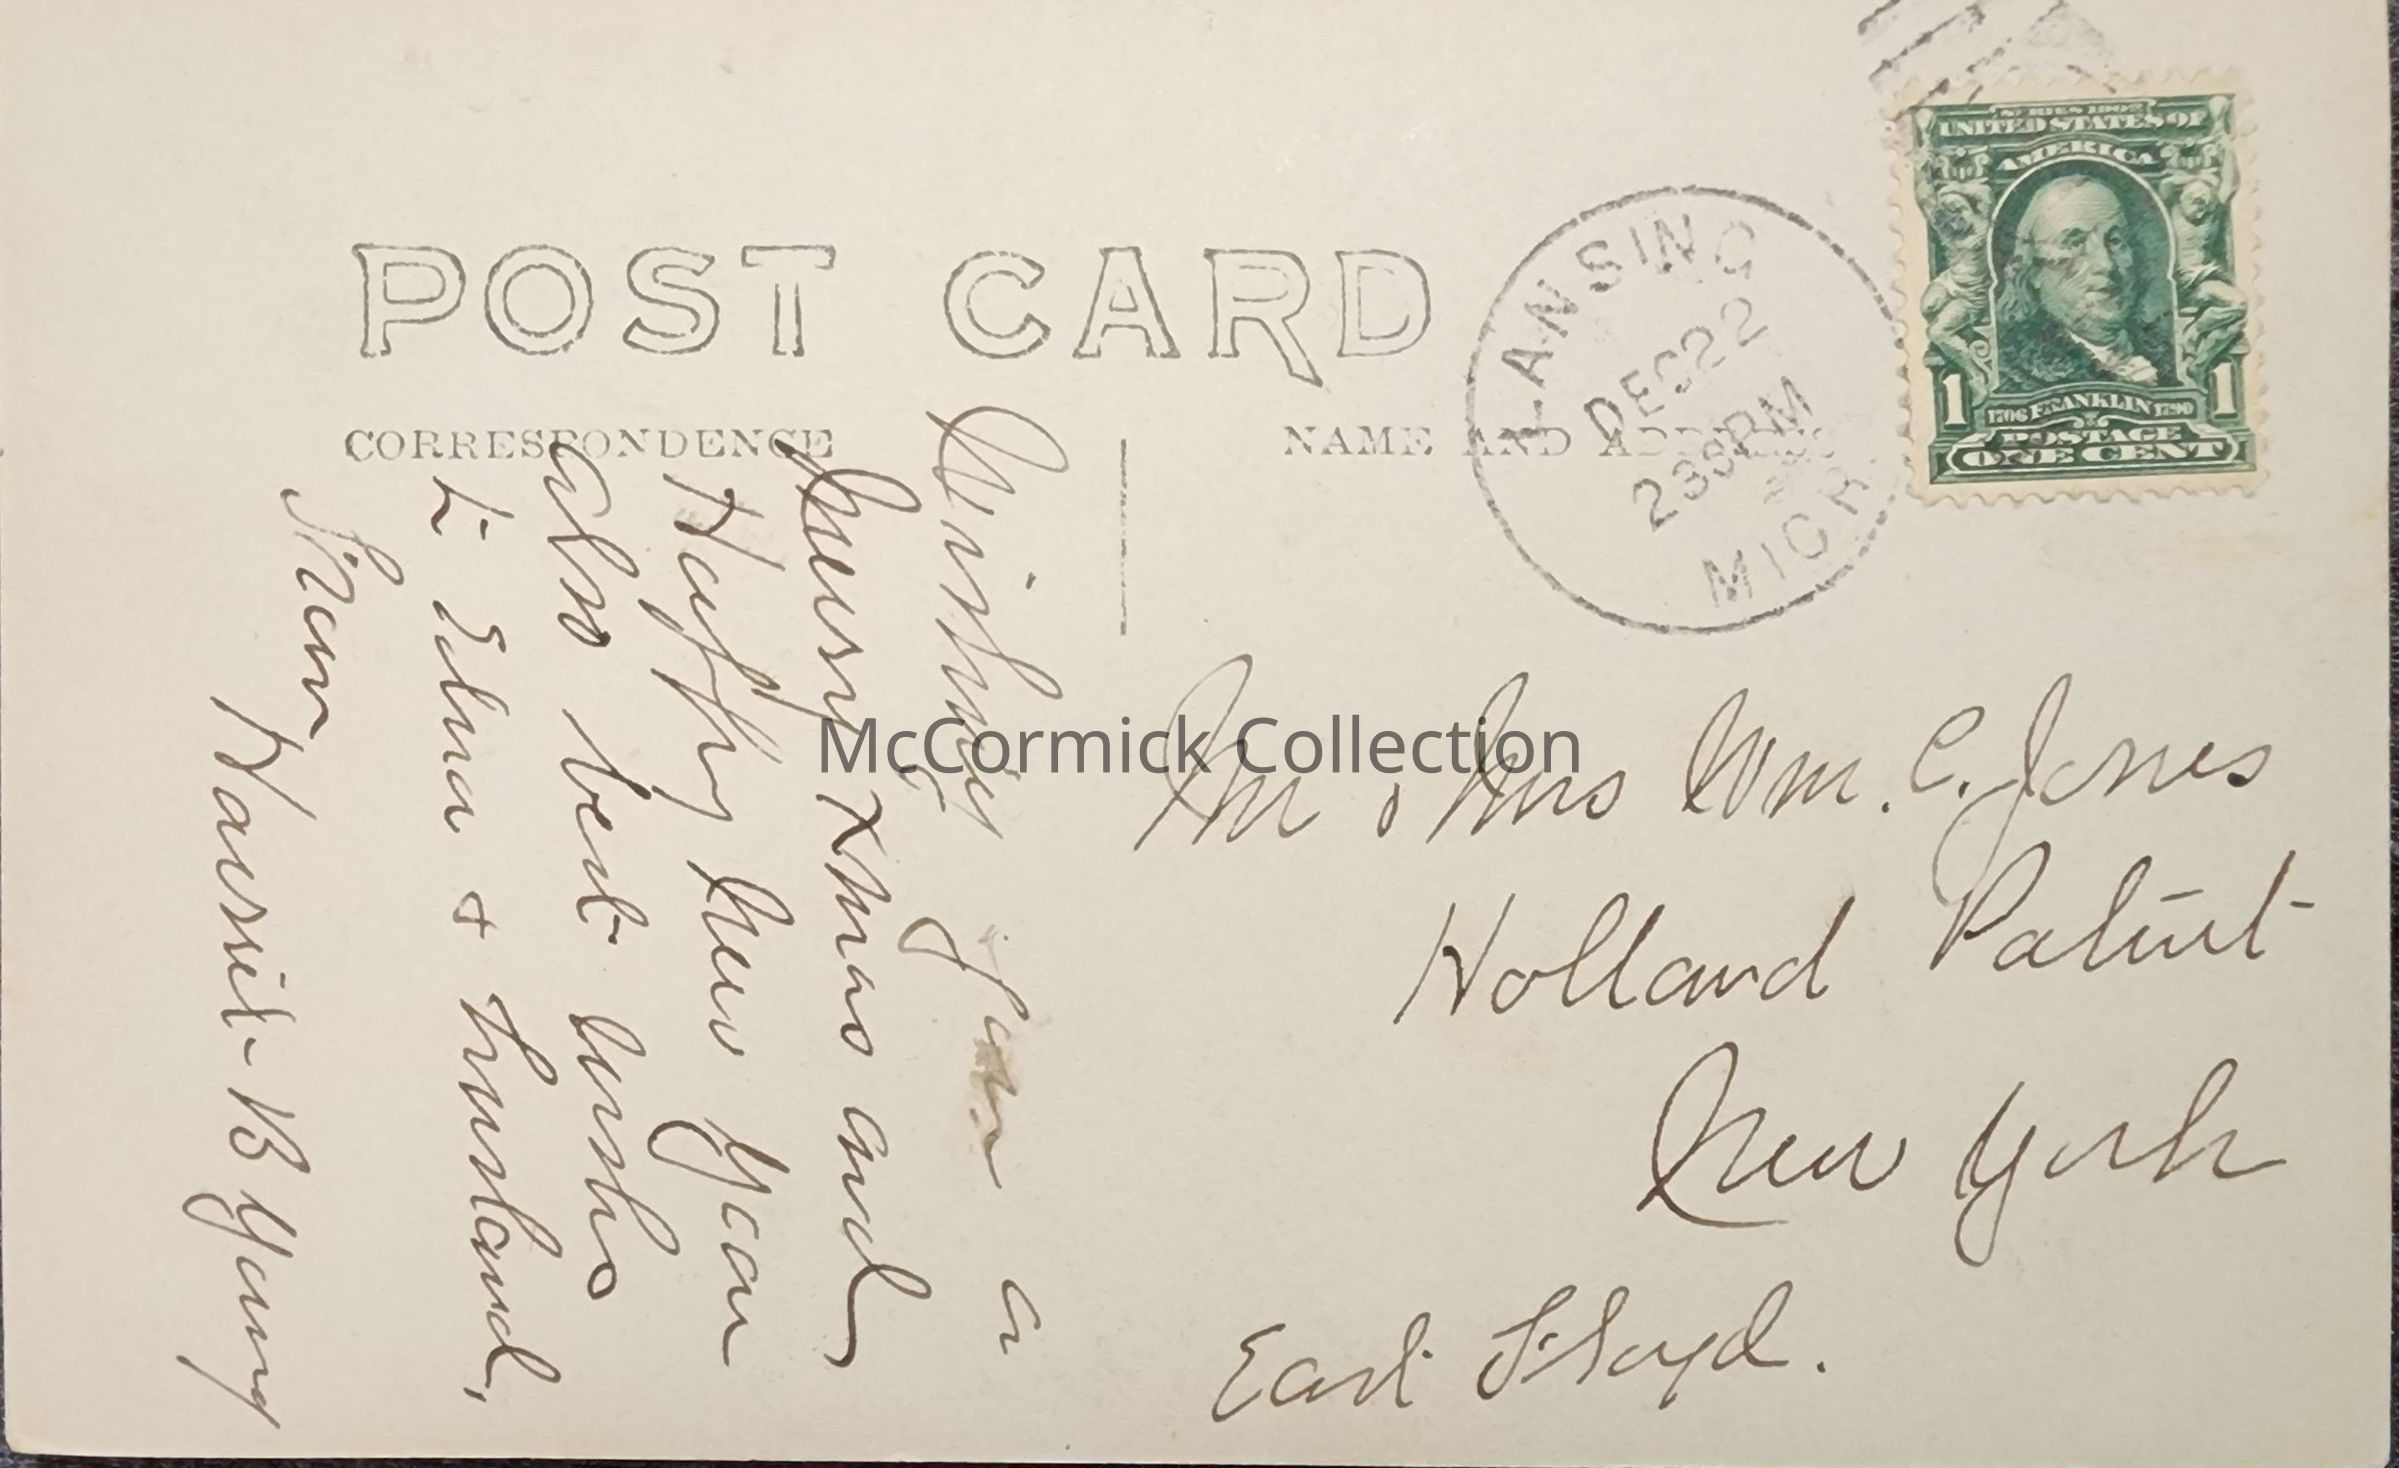 POST CARD
CORRESPONDENCE
NAME AND ADDRESS
LANSING
DEC 22
230PM
MICH.
SERIES 1902
UNITED STATES OF
AMERICA
1 1
1706 FRANKLIN 1790
POSTAGE
ONE CENT
Wishing you a
Merry Xmas and
Happy New Year
also best wishes
to Edna + husband.
From
Harriet B Young
Mr. & Mrs Wm. C. Jones
Holland Patent
New York
East Floyd.
McCormick Collection